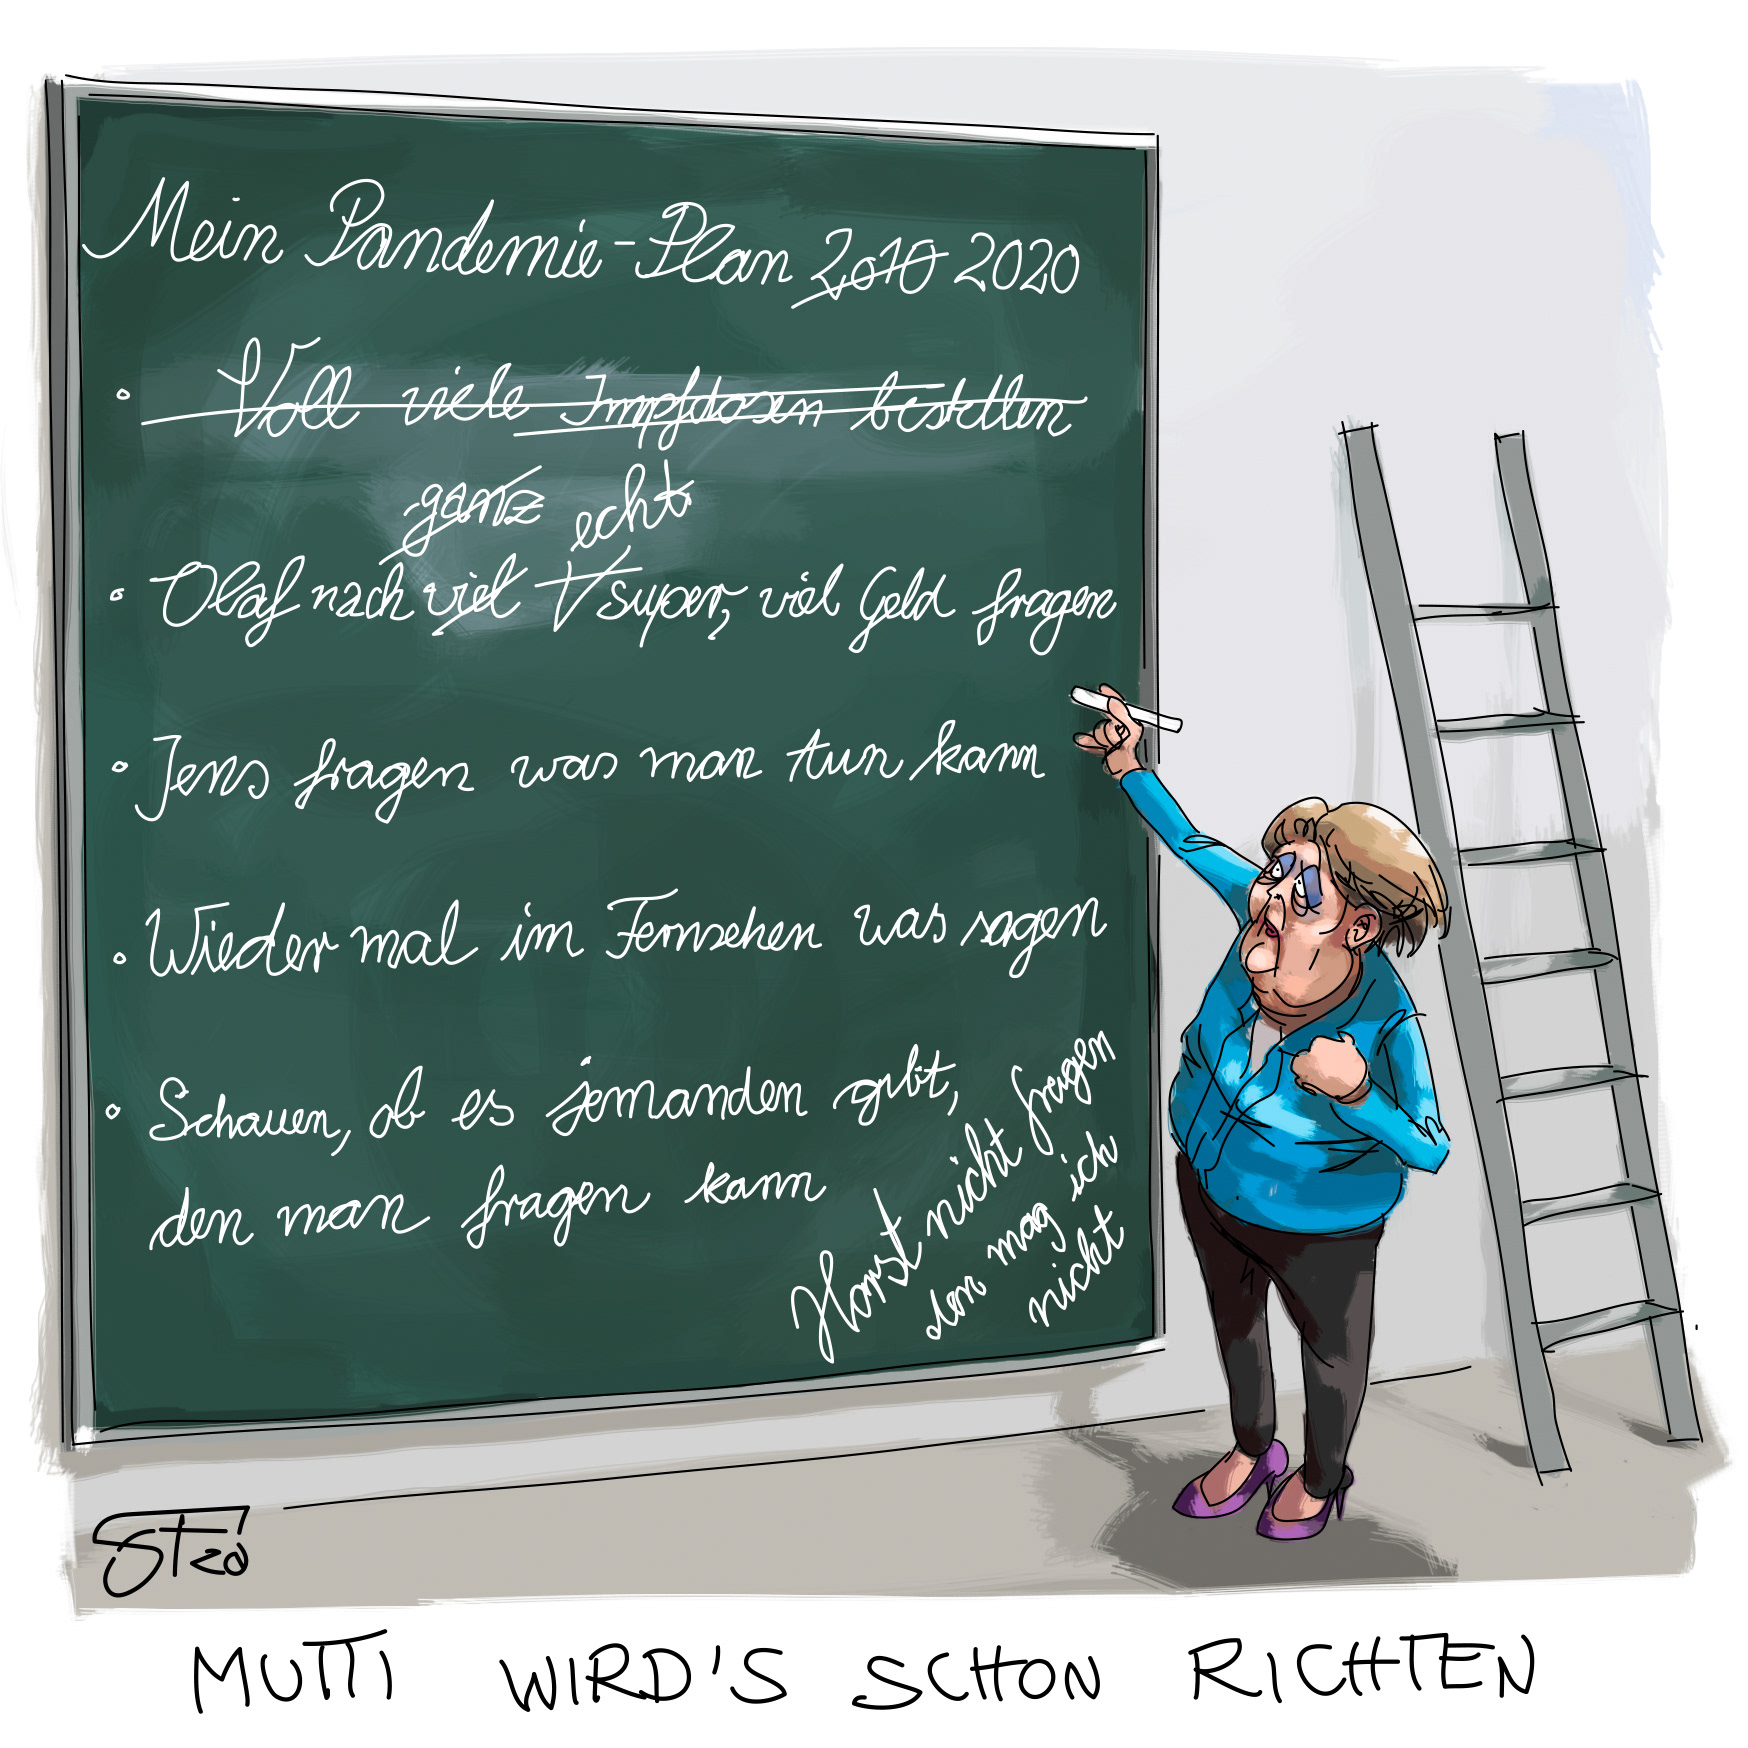 Mein Pandemie-Plan 2010 2020
• Voll viele Impfdosen bestellen
ganz echt
• Olaf nach viel super, viel Geld fragen
• Jens fragen was man tun kann
• Wieder mal im Fernsehen was sagen
• Schauen, ob es jemanden gibt,
den man fragen kann
Horst nicht fragen
den mag ich
nicht
STZO
MUTTI WIRD'S SCHON RICHTEN